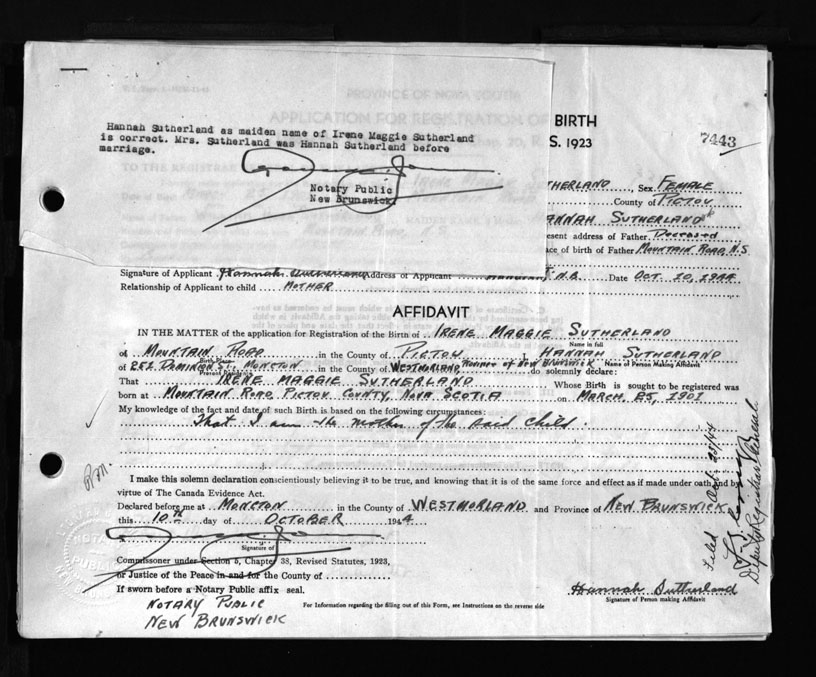 PROVINCE OF NOVA SCOTIA
APPLICATION FOR REGISTRATION OF BIRTH
S. 1923
7443
Hannah Sutherland as maiden name of Irene Maggie Sutherland
is correct. Mrs. Sutherland was Hannah Sutherland before
marriage.
Notary Public
New Brunswick
THERLAND, Sex FEMALE
County of PICTOU
HANNAH SUTHERLAND
esent address of Father Deceased
ace of birth of Father MOUNTAIN ROAD, N.S.
Signature of Applicant Hannah Sutherland Address of Applicant N.B. Date OCT. 10, 1944
Relationship of Applicant to child MOTHER
AFFIDAVIT
IN THE MATTER of the application for Registration of the Birth of IRENE MAGGIE SUTHERLAND
Name in full
of MOUNTAIN ROAD in the County of PICTOU, I HANNAH SUTHERLAND
Birth Place
Name of Person Making Affidavit
of 282 DOMINION ST. MONCTON in the County of WESTMORLAND Province of NEW BRUNSWICK do solemnly declare:
Present Residence
That IRENE MAGGIE SUTHERLAND Whose Birth is sought to be registered was
born at MOUNTAIN ROAD, PICTOU COUNTY, NOVA SCOTIA on MARCH, 25, 1901
My knowledge of the fact and date of such Birth is based on the following circumstances:
That I am the mother of the said child.
I make this solemn declaration conscientiously believing it to be true, and knowing that it is of the same force and effect as if made under oath and by
virtue of The Canada Evidence Act.
Declared before me at MONCTON in the County of WESTMORLAND and Province of NEW BRUNSWICK
this 10th day of OCTOBER 1944
Signature of
Commissoner under Section 5, Chapter 38, Revised Statutes, 1923,
or Justice of the Peace in and for the County of
If sworn before a Notary Public affix seal.
NOTARY PUBLIC
NEW BRUNSWICK
For Information regarding the filling out of this Form, see Instructions on the reverse side
Hannah Sutherland
Signature of Person making Affidavit
Filed Oct 25/44
Deputy Registrar General